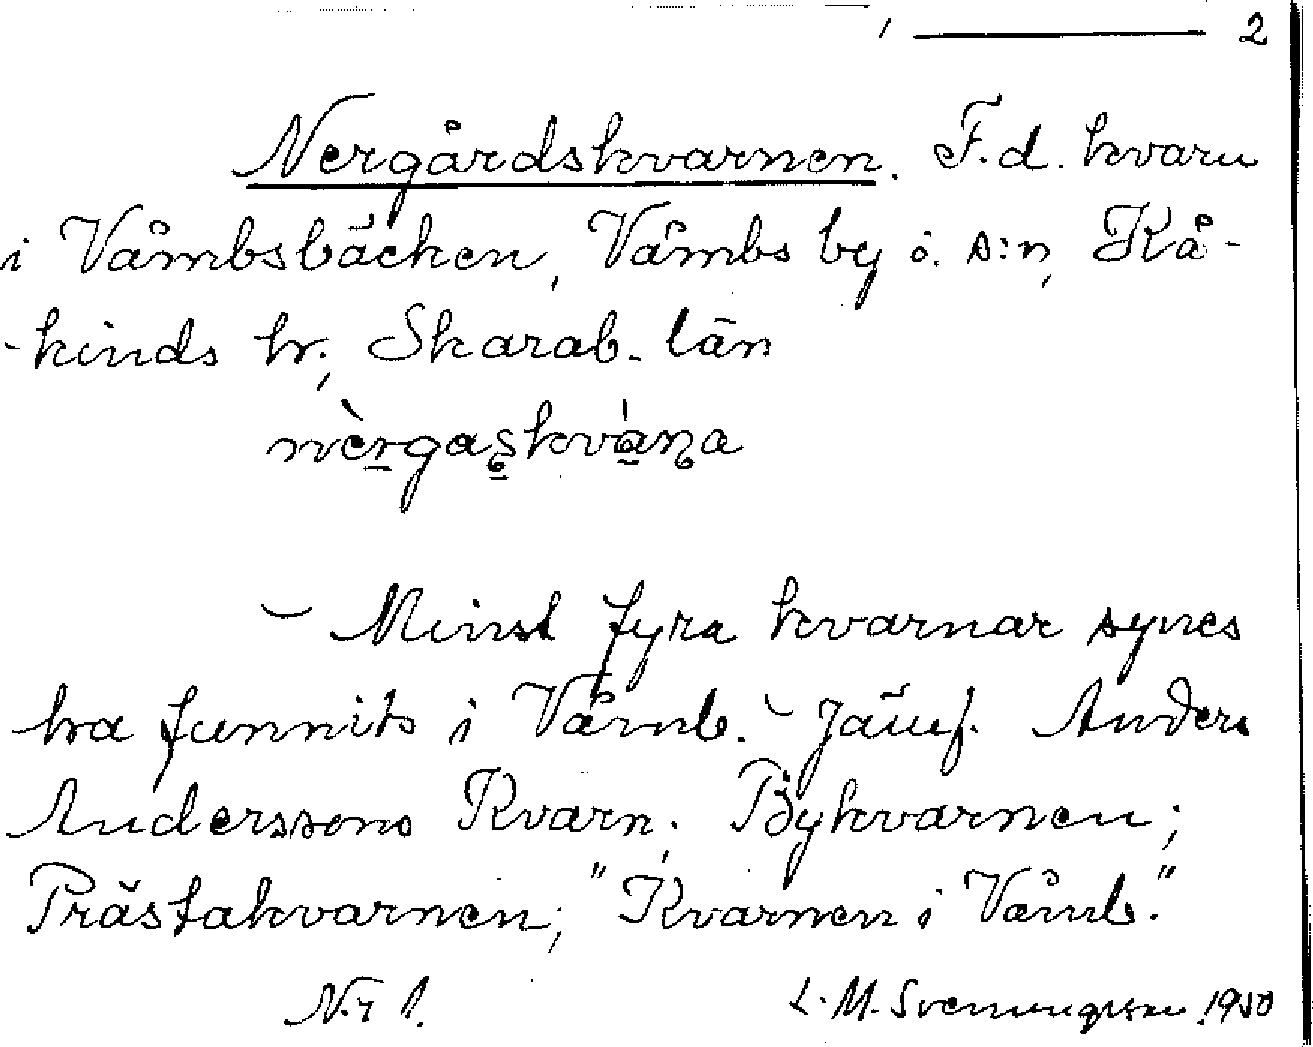 2
Nergårdskvarnen. F.d. kvarn
i Våmbsbäcken, Våmbs by o. s:n, Kå-
-kinds hr, Skarab. län
nèrgaskvána
– Minst fyra kvarnar synes
ha funnits i Våmb. – Jämf. Anders
Anderssons Kvarn; Bykvarnen;
Prästakvarnen; "Kvarnen i Våmb."
L. M. Svenungsson 1950